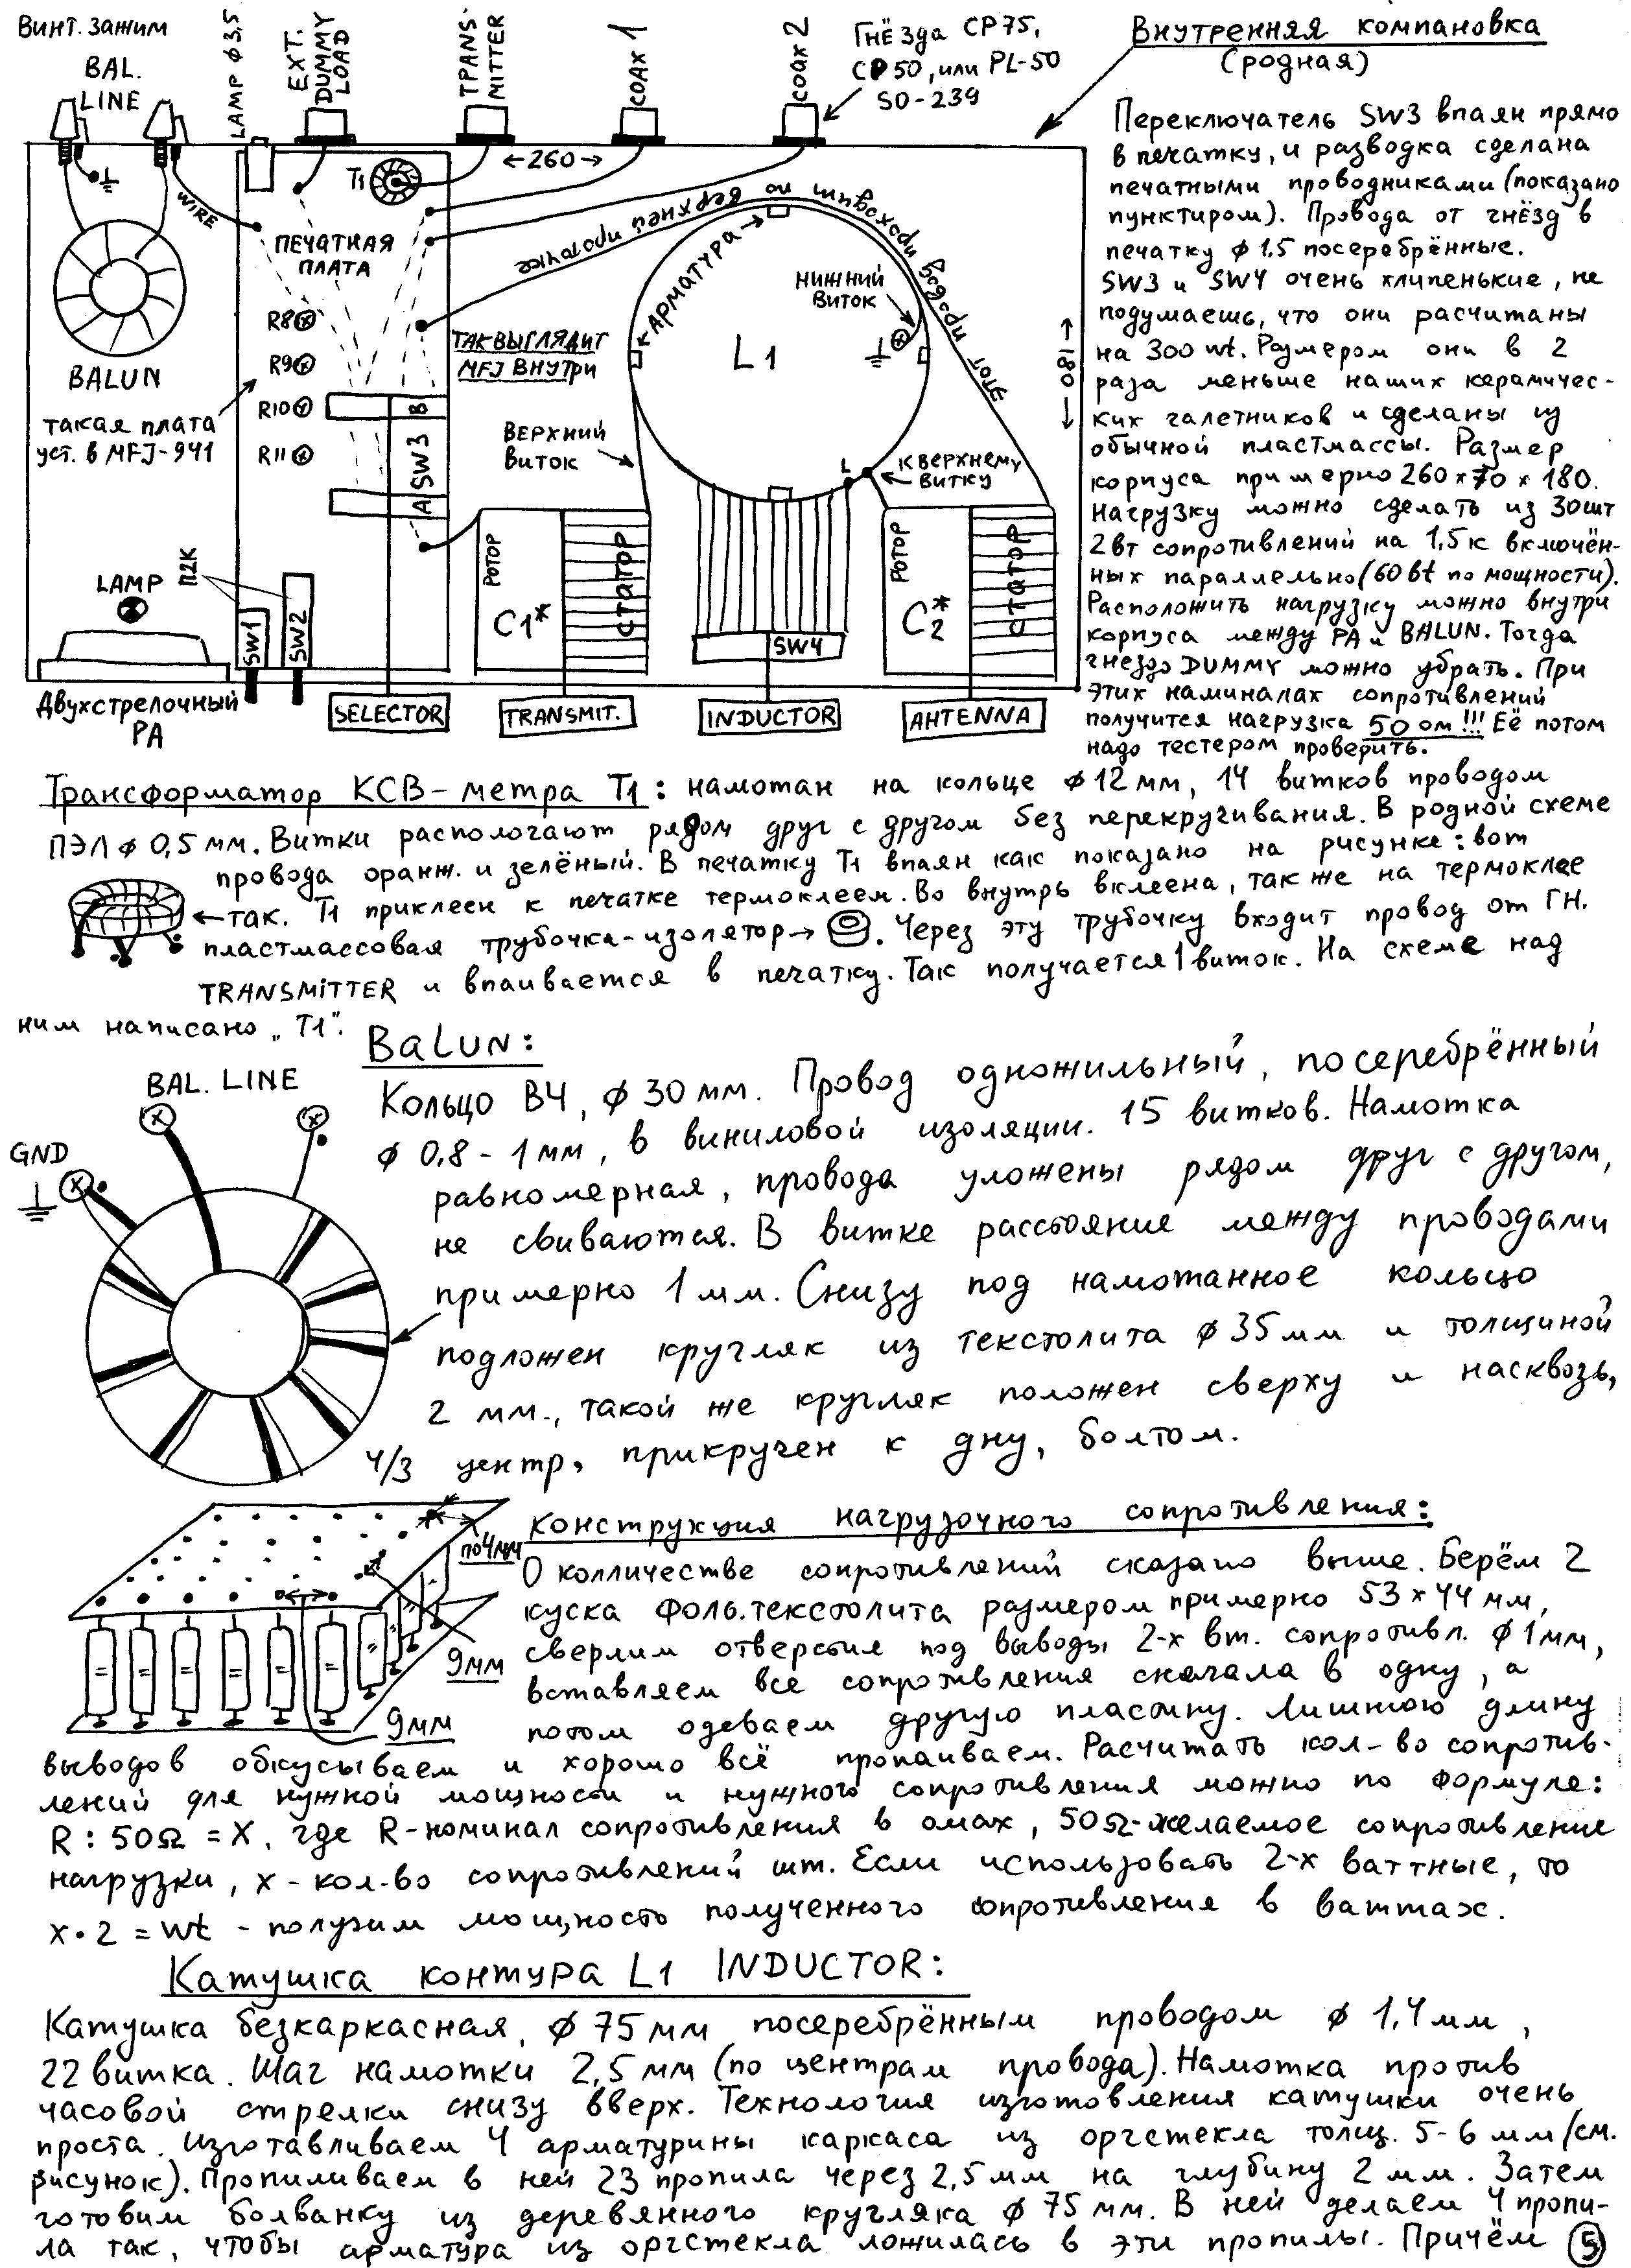 Винт. зажим
BAL.
LINE
LAMP ϕ3,5
EXT.
DUMMY
LOAD
TRANS-
MITTER
COAX 1
COAX 2
Гнёзда СР75,
СР50, или PL-50
SO-239
Внутренняя компановка
(родная)
WIRE
T1
←260→
ПЕЧАТНАЯ
ПЛАТА
этот провод проходит по верхней кромочке
АРМАТУРА
НИЖНИЙ
Виток
L1
←180→
BALUN
R8
R9
R10
R11
такая плата
уст. в MFJ-941
ТАК ВЫГЛЯДИТ
MFJ ВНУТРИ
ВЕРХНИЙ
Виток
К ВЕРХНЕМУ
ВИТКУ
B
SW3
A
РОТОР
СТАТОР
C1*
РОТОР
СТАТОР
C2*
SW4
LAMP
П2К
SW1
SW2
Двухстрелочный
PA
SELECTOR
TRANSMIT.
INDUCTOR
AHTENNA
Переключатель SW3 впаян прямо
в печатку, и разводка сделана
печатными проводниками (показано
пунктиром). Провода от гнёзд в
печатку ϕ 1.5 посеребрённые.
SW3 и SW4 очень хлипенькие, не
подумаешь, что они расчитаны
на 300 wt. Размером они в 2
раза меньше наших керамичес-
ких галетников и сделаны из
обычной пластмассы. Размер
корпуса примерно 260×70×180.
Нагрузку можно сделать из 30шт
2вт сопротивлений на 1,5к включён-
ных параллельно (60 вt по мощности).
Расположить нагрузку можно внутри
корпуса между PA и BALUN. Тогда
гнездо DUMMY можно убрать. При
этих наминалах сопротивлений
получится нагрузка 50 ом!!! Её потом
надо тестером проверить.
Трансформатор КСВ-метра T1: намотан на кольце ϕ 12 мм, 14 витков проводом
ПЭЛ ϕ 0,5 мм. Витки распологают рядом друг с другом без перекручивания. В родной схеме
провода оранж. и зелёный. В печатку T1 впаян как показано на рисунке: вот
←так. T1 приклеен к печатке термоклеем. Во внутрь вклеена, так же на термоклее
пластмассовая трубочка-изолятор→. Через эту трубочку входит провод от ГН.
TRANSMITTER и впаивается в печатку. Так получается 1 виток. На схеме над
ним написано „T1".
BALUN:
BAL. LINE
GND
Кольцо ВЧ, ϕ 30 мм. Провод одножильный, посеребрённый
ϕ 0,8 - 1 мм, в виниловой изоляции. 15 витков. Намотка
равномерная, провода уложены рядом друг с другом,
не свиваются. В витке расстояние между проводами
примерно 1 мм. Снизу под намотанное кольцо
подложен кругляк из текстолита ϕ 35 мм и толщиной
2 мм., такой же кругляк положен сверху и насквозь,
ч/з центр, прикручен к дну, болтом.
Конструкция нагрузочного сопротивления:
по 4 мм
9мм
9мм
О колличестве сопротивлений сказано выше. Берём 2
куска фоль.текстолита размером примерно 53×44 мм,
сверлим отверстия под выводы 2-х вт. сопротивл. ϕ 1 мм,
вставляем все сопротивления сначала в одну, а
потом одеваем другую пластину. Лишнюю длину
выводов обкусываем и хорошо всё пропаиваем. Расчитать кол-во сопротив-
лений для нужной мощности и нужного сопротивления можно по формуле:
R : 50Ω = X, где R-номинал сопротивления в омах, 50Ω-желаемое сопротивление
нагрузки, x - кол-во сопротивлений шт. Если использовать 2-х ваттные, то
x·2 = wt - получим мощность полученного сопротивления в ваттах.
Катушка контура L1 INDUCTOR:
Катушка безкаркасная, ϕ 75 мм посеребрённым проводом ϕ 1,4 мм,
22 витка. Шаг намотки 2,5 мм (по центрам провода). Намотка против
часовой стрелки снизу вверх. Технология изготовления катушки очень
проста. Изготавливаем 4 арматурины каркаса из оргстекла толщ. 5-6 мм/см.
рисунок). Пропиливаем в ней 23 пропила через 2,5 мм на глубину 2 мм. Затем
готовим болванку из деревянного кругляка ϕ 75 мм. В ней делаем 4 пропи-
ла так, чтобы арматура из оргстекла ложилась в эти пропилы. Причём
5